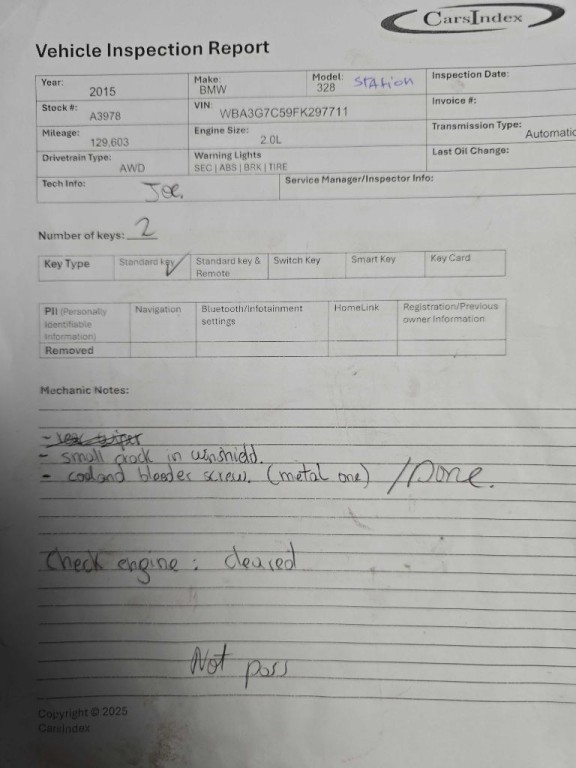 CarsIndex
Vehicle Inspection Report
Year: 2015 Make: BMW Model: 328 Station Inspection Date:
Stock #: A3978 VIN: WBA3G7C59FK297711 Invoice #:
Mileage: 129,603 Engine Size: 2.0L Transmission Type: Automatic
Drivetrain Type: AWD Warning Lights SEC | ABS | BRK | TIRE Last Oil Change:
Tech Info: Joe. Service Manager/Inspector Info:
Number of keys: 2
Key Type Standard key Standard key & Remote Switch Key Smart Key Key Card
PII (Personally Identifiable Information) Removed Navigation Bluetooth/Infotainment settings HomeLink Registration/Previous owner Information
Mechanic Notes:
- small crack in winshidd.
- cooland bleeder screw. (metal one) / Done.
Check engine : cleared
Not pass
Copyright © 2025
CarsIndex